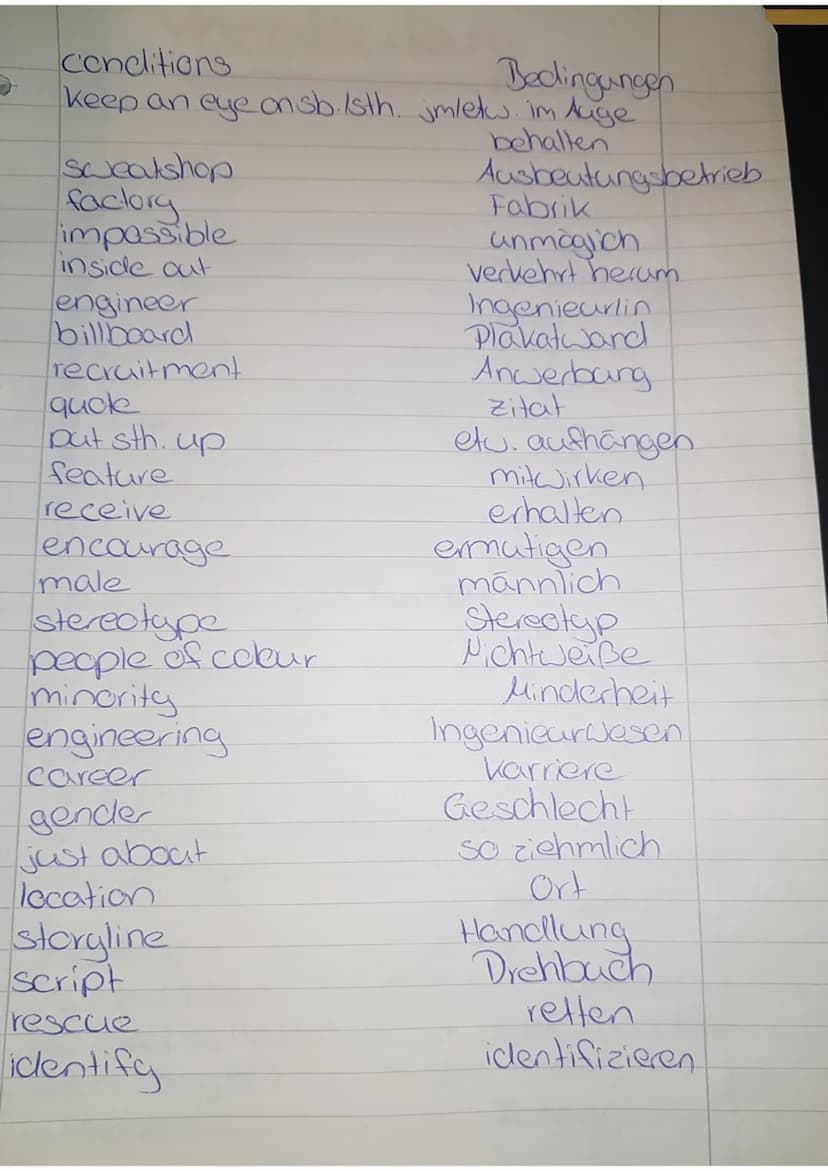 conditions Bedingungen
keep an eye on sb./sth. jm/etw. im Auge
behalten
sweatshop Ausbeutungsbetrieb
factory Fabrik
impossible unmöglich
inside out verkehrt herum
engineer Ingenieur/in
billboard Plakatwand
recruitment Anwerbung
quote Zitat
put sth. up etw. aufhängen
feature mitwirken
receive erhalten
encourage ermutigen
male männlich
stereotype Stereotyp
people of colour Nichtweiße
minority Minderheit
engineering Ingenieurwesen
career Karriere
gender Geschlecht
just about so ziehmlich
location Ort
storyline Handlung
script Drehbuch
rescue retten
identify identifizieren